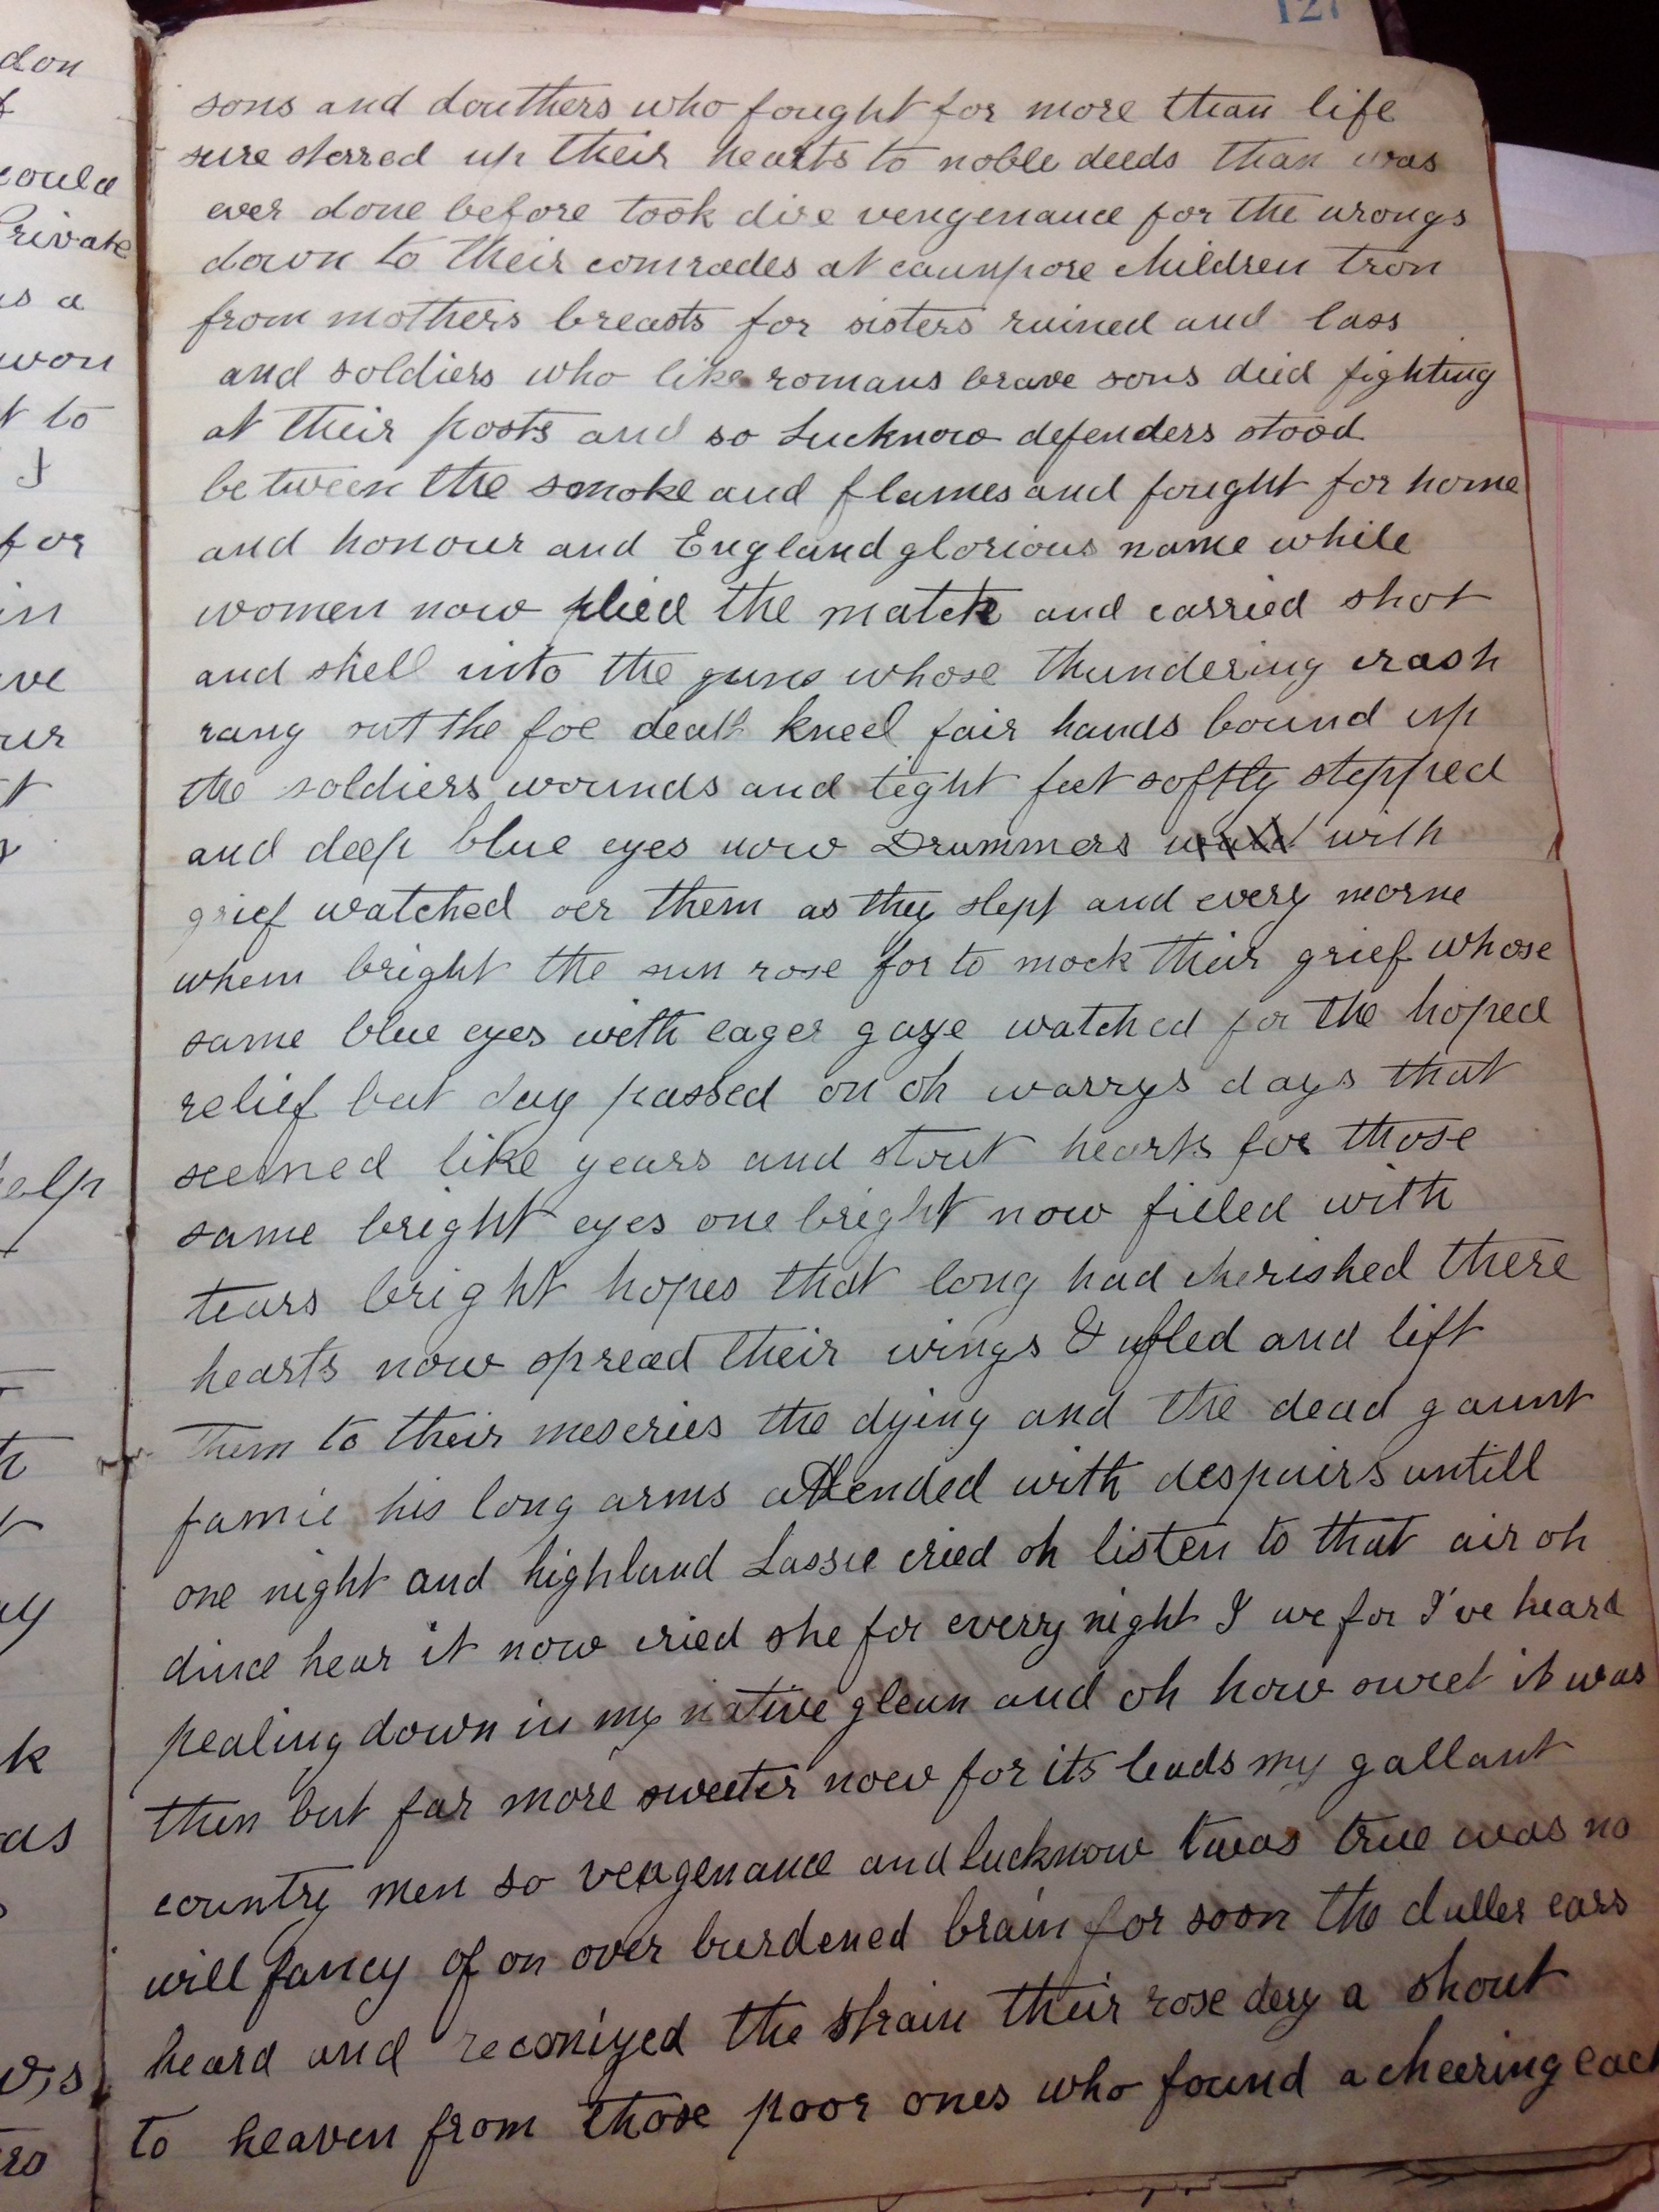 127
sons and douthers who fought for more than life
sure sterred up their hearts to noble deeds than was
ever done before took dire vengenance for the wrongs
down to their comrades at caunpore children tron
from mothers breasts for sisters ruined and lass
and soldiers who like romans brave sons died fighting
at their posts and so Lucknow defenders stood
between the smoke and flames and fought for home
and honour and England glorious name while
women now plied the match and carried shot
and shell into the guns whose thundering crash
rang out the foe death kneel fair hands bound up
the soldiers wounds and tight feet softly stepped
and deep blue eyes now Drummers with
grief watched oer them as they slept and every morne
when bright the sun rose for to mock their grief whose
same blue eyes with eager gaze watched for the hoped
relief but day passed on oh warrys days that
seemed like years and stout hearts for those
same bright eyes one bright now filled with
tears bright hopes that long had cherished there
hearts now spread their wings & fled and lift
them to their meseries the dying and the dead gaunt
famie his long arms attended with despairs untill
one night and highland Lassie cried oh listen to that air oh
dince hear it now cried she for everry night I we for I've heard
pealing down in my native glenn and oh how swet it was
then but far more sweeter now for its leads my gallant
country men so vengenance and lucknow twas true was no
will fancy of on over burdened brain for soon the duller ears
heard and reconized the strain their rose dery a shout
to heaven from those poor ones who found a cheering each
don
could
Private
is a
won
t to
I
for
in
ve
ur
t
help
th
ay
k
as